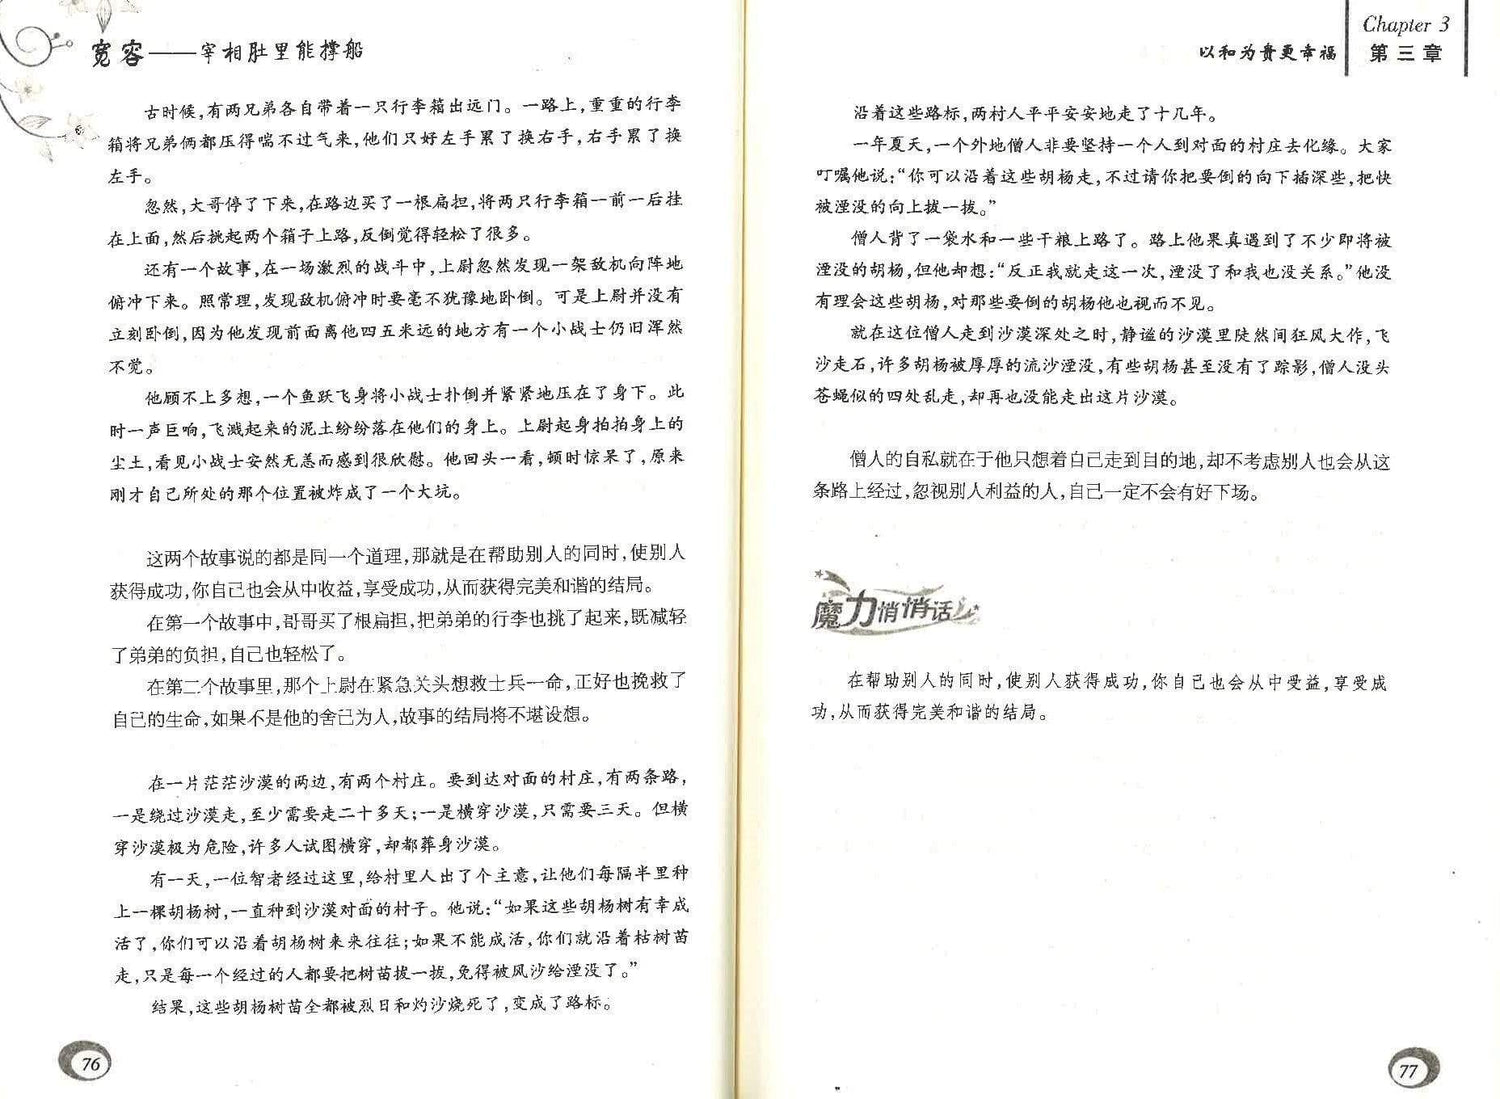 宽容——宰相肚里能撑船
古时候,有两兄弟各自带着一只行李箱出远门。一路上,重重的行李
箱将兄弟俩都压得喘不过气来,他们只好左手累了换右手,右手累了换
左手。
忽然,大哥停了下来,在路边买了一根扁担,将两只行李箱一前一后挂
在上面,然后挑起两个箱子上路,反倒觉得轻松了很多。
还有一个故事,在一场激烈的战斗中,上尉忽然发现一架敌机向阵地
俯冲下来。照常理,发现敌机俯冲时要毫不犹豫地卧倒。可是上尉并没有
立刻卧倒,因为他发现前面离他四五米远的地方有一个小战士仍旧浑然
不觉。
他顾不上多想,一个鱼跃飞身将小战士扑倒并紧紧地压在了身下。此
时一声巨响,飞溅起来的泥土纷纷落在他们的身上。上尉起身拍拍身上的
尘土,看见小战士安然无恙而感到很欣慰。他回头一看,顿时惊呆了,原来
刚才自己所处的那个位置被炸成了一个大坑。
这两个故事说的都是同一个道理,那就是在帮助别人的同时,使别人
获得成功,你自己也会从中收益,享受成功,从而获得完美和谐的结局。
在第一个故事中,哥哥买了根扁担,把弟弟的行李也挑了起来,既减轻
了弟弟的负担,自己也轻松了。
在第二个故事里,那个上尉在紧急关头想救士兵一命,正好也挽救了
自己的生命,如果不是他的舍己为人,故事的结局将不堪设想。
在一片茫茫沙漠的两边,有两个村庄。要到达对面的村庄,有两条路,
一是绕过沙漠走,至少需要走二十多天;一是横穿沙漠,只需要三天。但横
穿沙漠极为危险,许多人试图横穿,却都葬身沙漠。
有一天,一位智者经过这里,给村里人出了个主意,让他们每隔半里种
上一棵胡杨树,一直种到沙漠对面的村子。他说:“如果这些胡杨树有幸成
活了,你们可以沿着胡杨树来来往往;如果不能成活,你们就沿着枯树苗
走,只是每一个经过的人都要把树苗拔一拔,免得被风沙给湮没了。”
结果,这些胡杨树苗全都被烈日和灼沙烧死了,变成了路标。
76
以和为贵更幸福
Chapter 3
第三章
沿着这些路标,两村人平平安安地走了十几年。
一年夏天,一个外地僧人非要坚持一个人到对面的村庄去化缘。大家
叮嘱他说:“你可以沿着这些胡杨走,不过请你把要倒的向下插深些,把快
被湮没的向上拔一拔。”
僧人背了一袋水和一些干粮上路了。路上他果真遇到了不少即将被
湮没的胡杨,但他却想:“反正我就走这一次,湮没了和我也没关系。”他没
有理会这些胡杨,对那些要倒的胡杨他也视而不见。
就在这位僧人走到沙漠深处之时,静谧的沙漠里陡然间狂风大作,飞
沙走石,许多胡杨被厚厚的流沙湮没,有些胡杨甚至没有了踪影,僧人没头
苍蝇似的四处乱走,却再也没能走出这片沙漠。
僧人的自私就在于他只想着自己走到目的地,却不考虑别人也会从这
条路上经过,忽视别人利益的人,自己一定不会有好下场。
魔力悄悄话
在帮助别人的同时,使别人获得成功,你自己也会从中受益,享受成
功,从而获得完美和谐的结局。
77